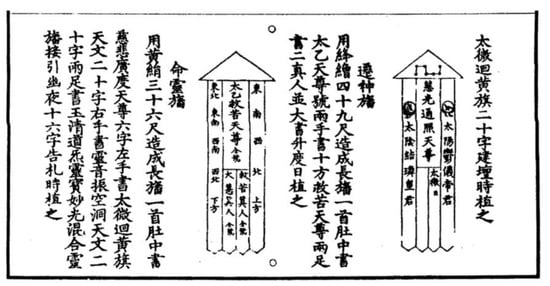 太微迴黃旗二十字建壇時植之
太陽鬱儀帝君
慧光通照天尊
太陰結璘皇君
遷神旛
用絳繒四十九尺造成長旛一首肚中書
太乙天尊號兩手書十方救苦天尊兩足
書二真人並大書升度日植之
東 南 西 北 上方
太乙救苦天尊
救苦真人
大慧真人
東北 東南 西南 西北 下方
命靈旛
用黃絹三十六尺造成長旛一首肚中書
慈悲廣度天尊六字左手書太微迴黃旗
天文二十字右手書靈音振空洞天文二
十字兩足書玉清道炁靈寶妙光混合靈
旛接引幽夜十六字告札時植之